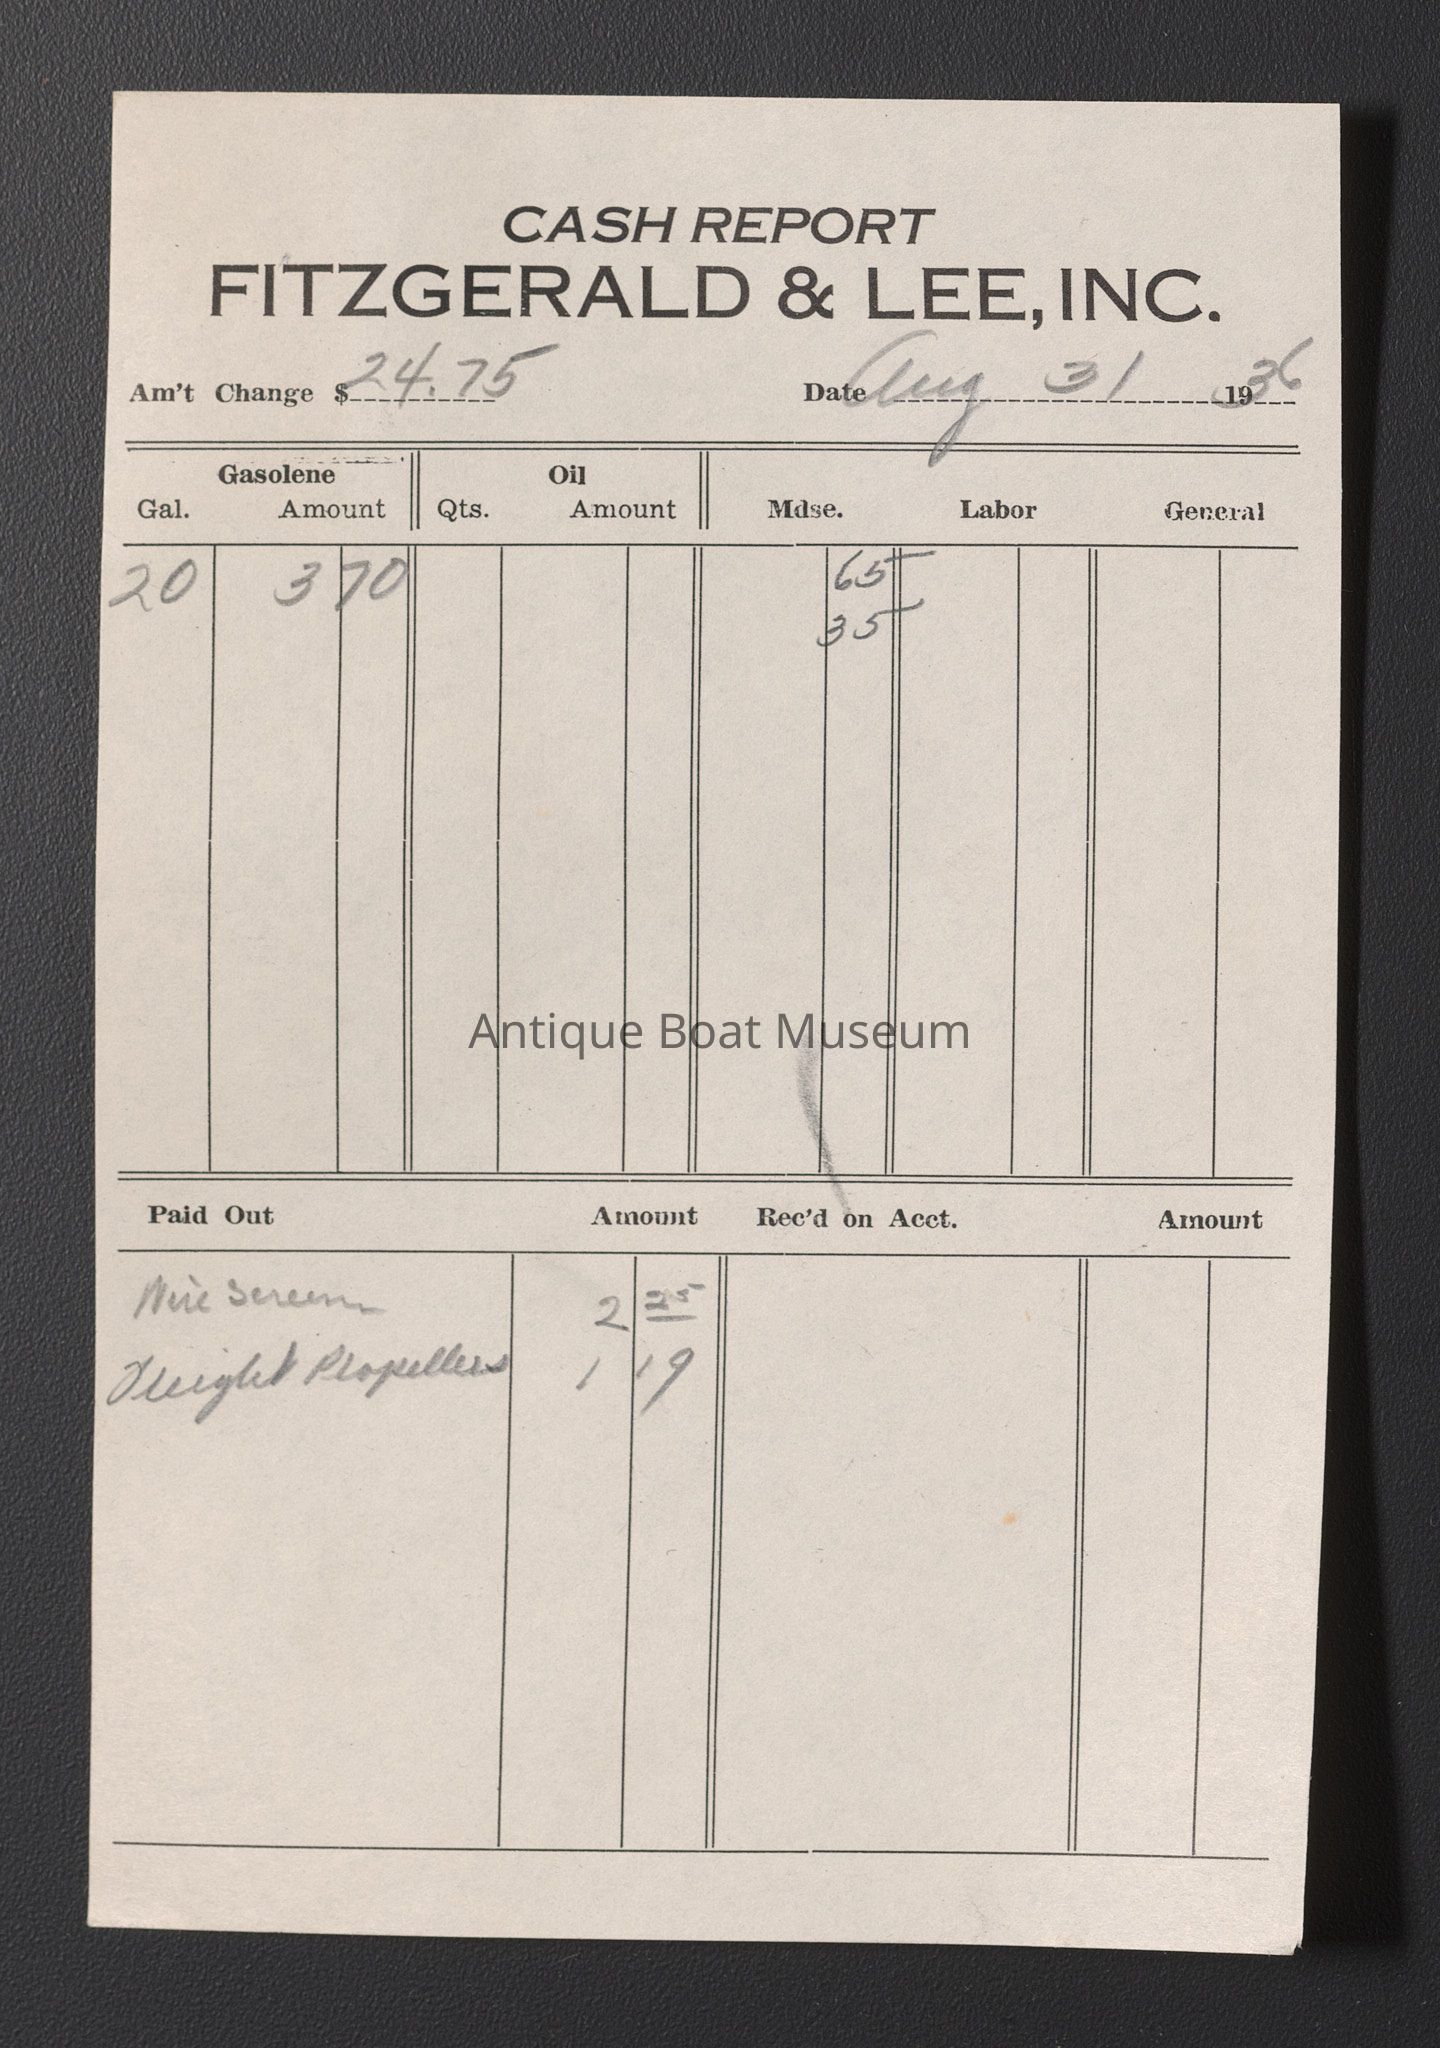 CASH REPORT
FITZGERALD & LEE, INC.
Am't Change $ 24.75 Date Aug 31 1936
Gasolene Oil
Gal. Amount Qts. Amount Mdse. Labor General
20 3 70 65
35
Antique Boat Museum
Paid Out Amount Rec'd on Acct. Amount
Wire Screen 2 25
Freight Propellers 1 19